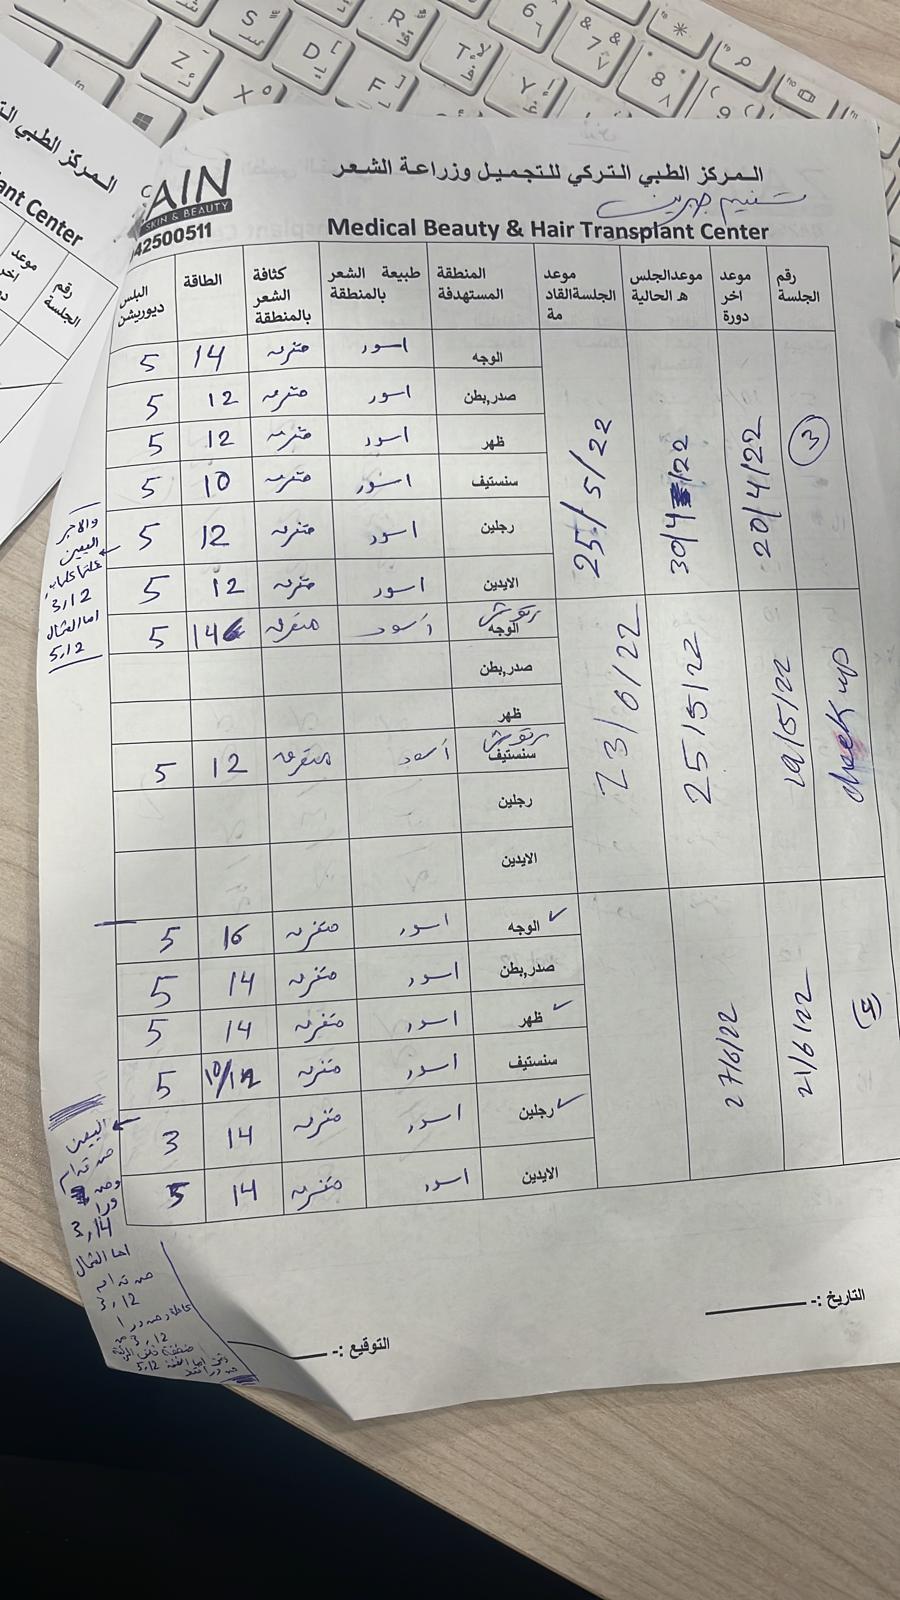 المركز الطبي التركي للتجميل وزراعة الشعر
تسنيم جبرين
Medical Beauty & Hair Transplant Center
AIN
SKIN & BEAUTY
42500511
رقم الجلسة | موعد اخر دورة | موعدالجلس ه الحالية | موعد الجلسةالقاد مة | المنطقة المستهدفة | طبيعة الشعر بالمنطقة | كثافة الشعر بالمنطقة | الطاقة | البلس ديوريشن
3 | 20/4/22 | 30/4/22 | 25/5/22
الوجه | اسود | متفرق | 14 | 5
صدر,بطن | اسود | متفرق | 12 | 5
ظهر | اسود | متفرق | 12 | 5
سنستيف | اسود | متفرق | 10 | 5
رجلين | اسود | متفرق | 12 | 5
الايدين | اسود | متفرق | 12 | 5
check up | 19/5/22 | 25/5/22 | 23/6/22
رتوش الوجه | أسود | متفرق | 14 | 5
صدر,بطن
ظهر
رتوش سنستيف | أسود | متفرق | 12 | 5
رجلين
الايدين
21/6/22 | 27/6/22
الوجه ✓ | اسود | متفرق | 16 | 5
صدر,بطن | اسود | متفرق | 14 | 5
ظهر ✓ | اسود | متفرق | 14 | 5
سنستيف | اسود | متفرق | 10/12 | 5
رجلين ✓ | اسود | متفرق | 14 | 3
الايدين | اسود | متفرق | 14 | 5
اليمين
3,12
اما الشمال
5,12
اليمين
من قدام
3,14
اما الشمال
من قدام
3,12
التاريخ :-
التوقيع :-
المركز الطبي
ant Center
رقم الجلسة
موعد